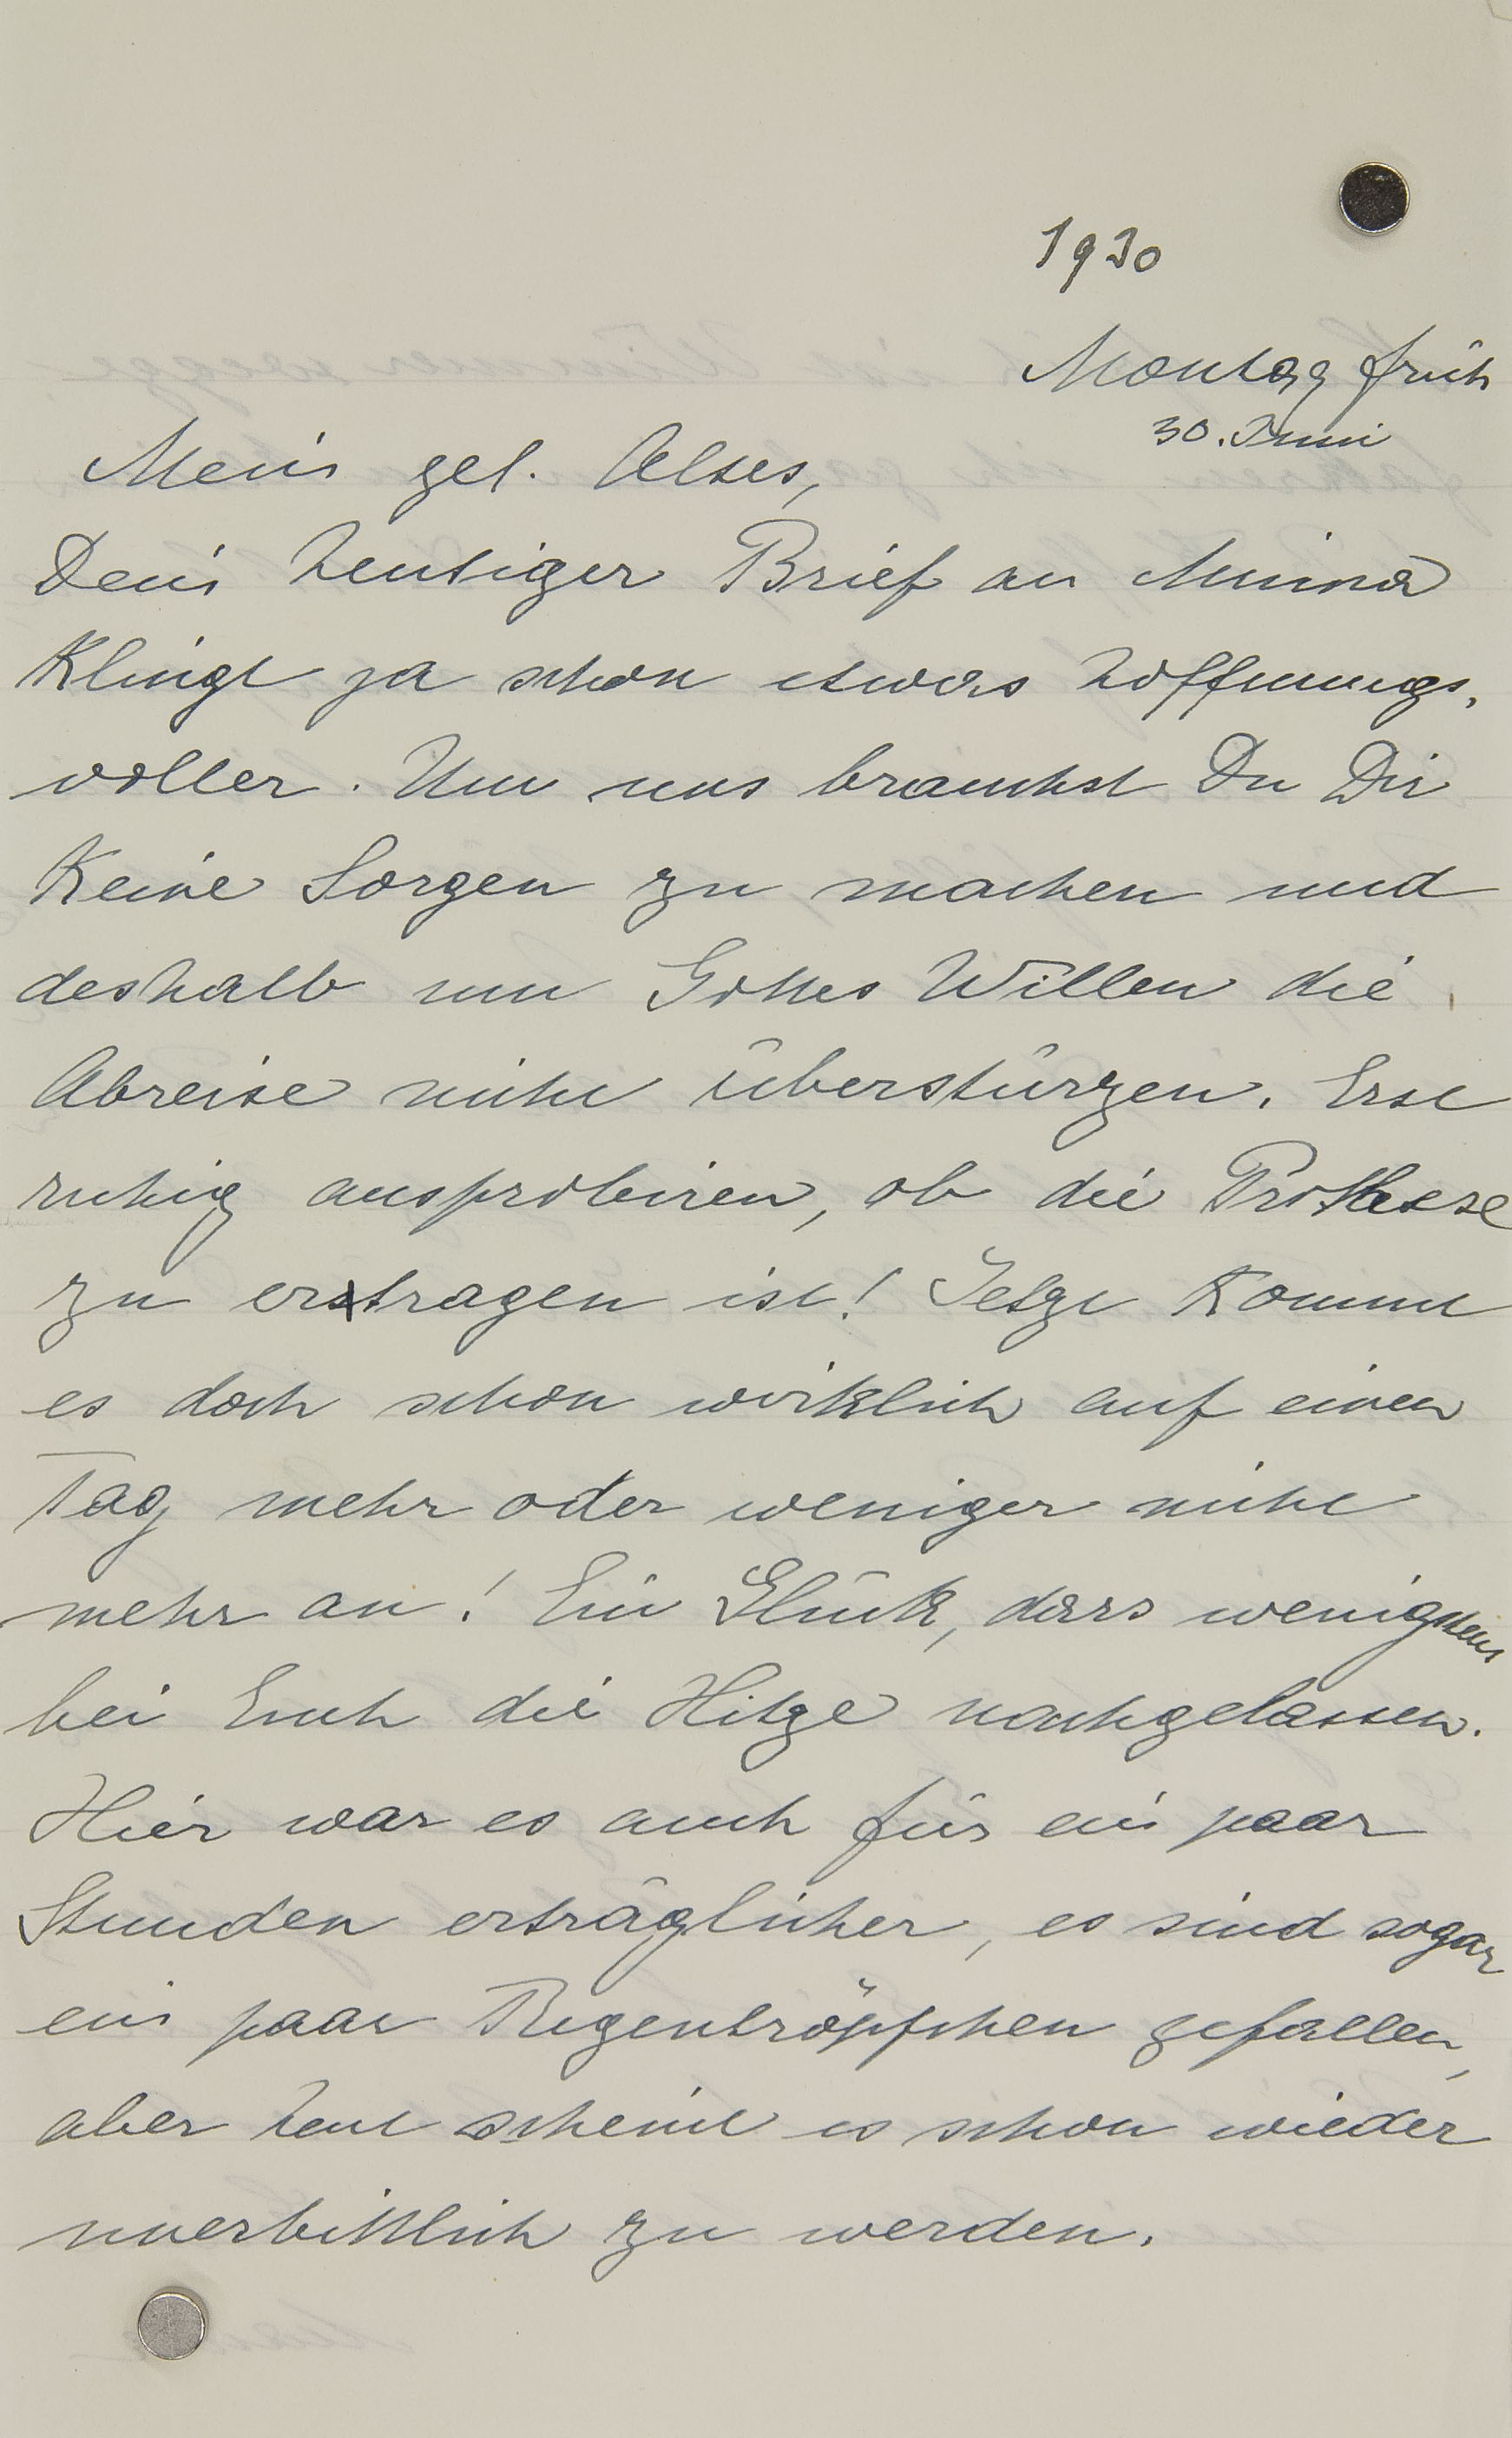 1930
Montag früh
30. Juni
Mein gel. Altes,
Dein heutiger Brief an Minna
klingt ja schon etwas hoffnungs-
voller. Um uns brauchst Du Dir
keine Sorgen zu machen und
deshalb um Gottes Willen die
Abreise nicht überstürzen. Erst
ruhig ausprobieren, ob die Prothese
zu ertragen ist! Jetzt kommt
es doch schon wirklich auf einen
Tag mehr oder weniger nicht
mehr an! Ein Glück, dass wenigstens
bei Euch die Hitze nachgelassen.
Hier war es auch für ein paar
Stunden erträglicher, es sind sogar
ein paar Regentröpfchen gefallen,
aber heut scheint es schon wieder
unerbittlich zu werden.